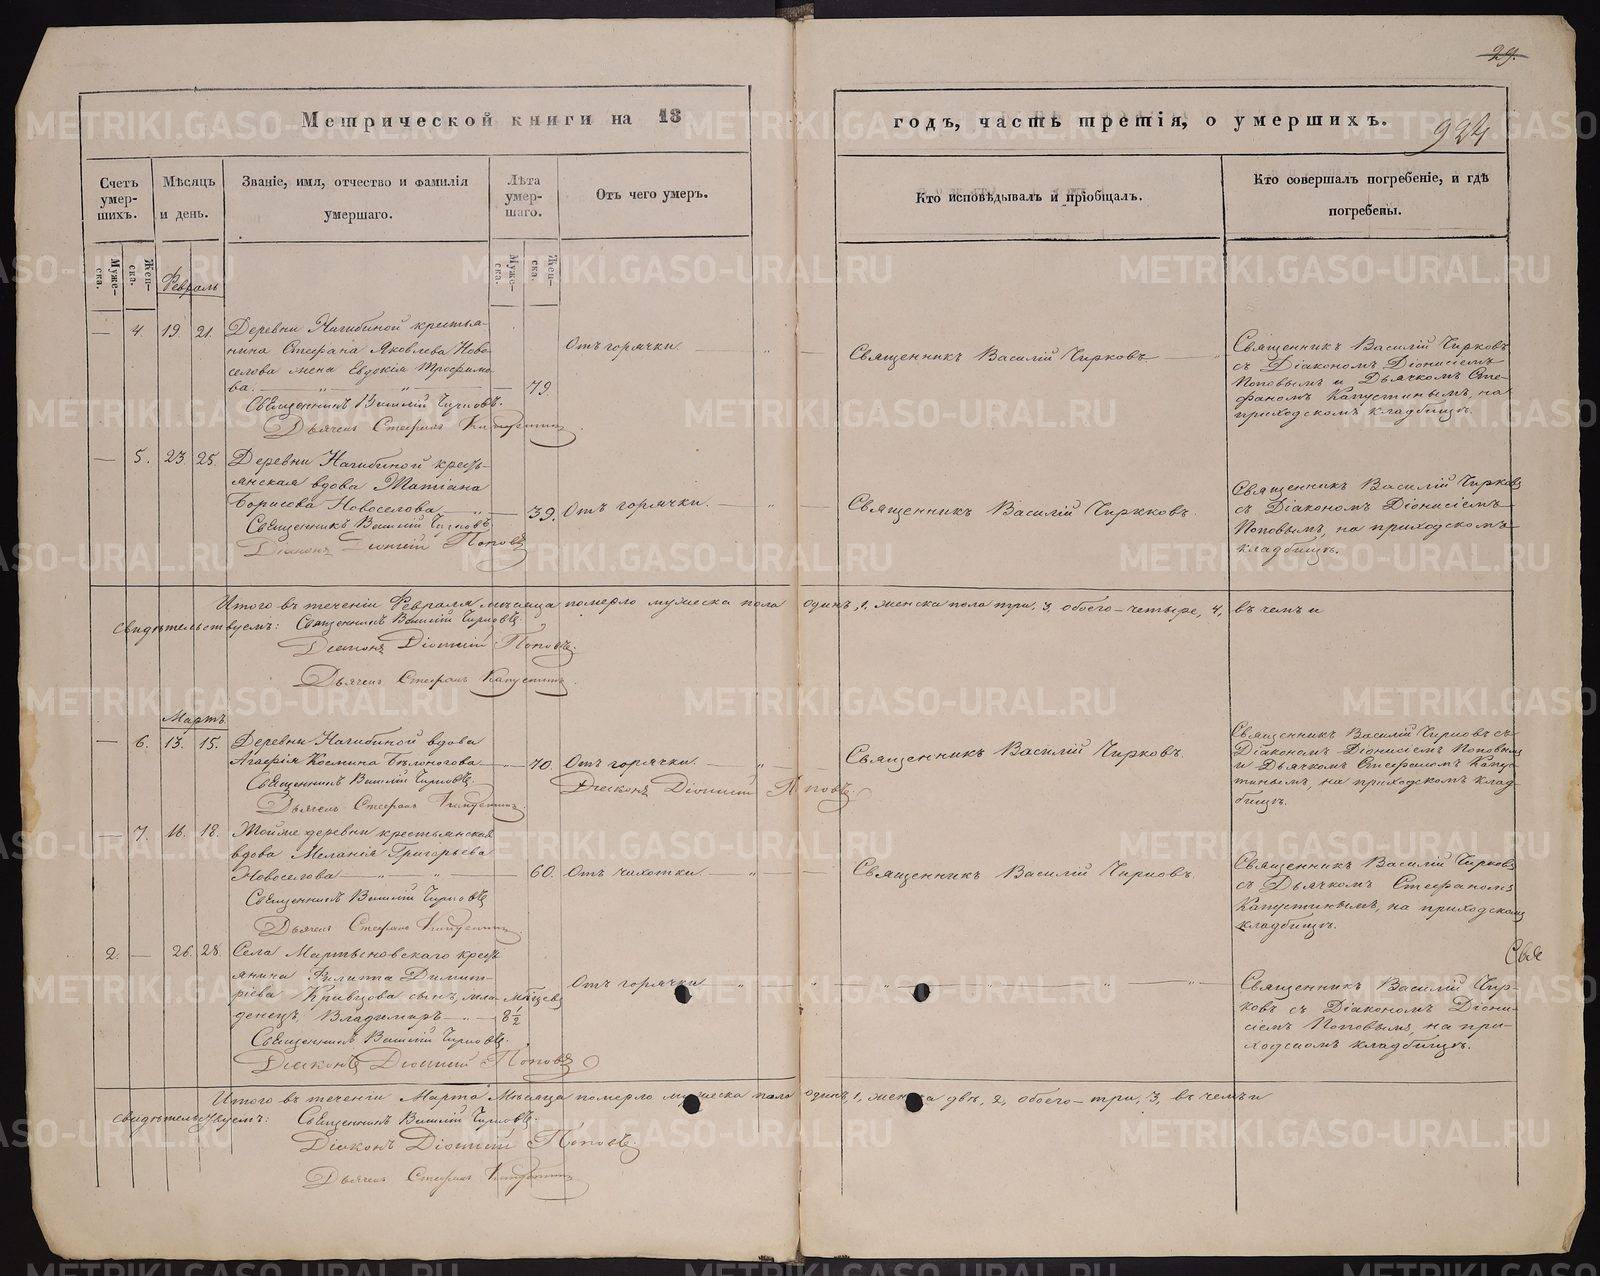 29.
Метрической книги на 18
годъ, часть третія, о умершихъ.
924
Счетъ умер-шихъ.
Мѣсяцъ и день.
Званіе, имя, отчество и фамилія умершаго.
Лѣта умер-шаго.
Отъ чего умеръ.
Кто исповѣдывалъ и пріобщалъ.
Кто совершалъ погребеніе, и гдѣ погребены.
Муже-ска.
Жен-ска.
Муже-ска.
Жен-ска.
Февраль
— 4. 19. 21.
Деревни Нагибиной крестья-
нина Стефана Яковлева Ново-
селова жена Евдокія Трофимо-
ва. — 79.
Отъ горячки.
Священникъ Василій Чирковъ
Священникъ Василій Чирковъ
съ Діакономъ Діонисіемъ
Поповымъ и Дьячкомъ Сте-
фаномъ Капустинымъ, на
приходскомъ кладбищѣ.
Священникъ Василій Чирковъ.
Дьячекъ Стефанъ Капустинъ.
— 5. 23. 25.
Деревни Нагибиной кресть-
янская вдова Татіана
Борисова Новоселова — 39.
Отъ горячки.
Священникъ Василій Чирковъ.
Священникъ Василій Чирковъ
съ Діакономъ Діонисіемъ
Поповымъ, на приходскомъ
кладбищѣ.
Священникъ Василій Чирковъ
Діаконъ Діонисій Поповъ
Итого въ теченіи Февраля мѣсяца померло мужеска пола одинъ, 1, женска пола три, 3, обоего — четыре, 4, въ чемъ и
свидѣтельствуемъ: Священникъ Василій Чирковъ.
Діаконъ Діонисій Поповъ.
Дьячекъ Стефанъ Капустинъ.
Мартъ.
— 6. 13. 15.
Деревни Нагибиной вдова
Агафія Космина Бѣлоногова — 70.
Отъ горячки.
Священникъ Василій Чирковъ.
Священникъ Василій Чирковъ съ
Діакономъ Діонисіемъ Поповымъ
и Дьячкомъ Стефаномъ Капус-
тинымъ, на приходскомъ клад-
бищѣ.
Священникъ Василій Чирковъ.
Діаконъ Діонисій Поповъ
Дьячекъ Стефанъ Капустинъ.
— 7. 16. 18.
Тойже деревни крестьянская
вдова Меланія Григорьева
Новоселова — 60.
Отъ чахотки.
Священникъ Василій Чирковъ.
Священникъ Василій Чирковъ
съ Дьячкомъ Стефаномъ
Капустинымъ, на приходскомъ
кладбищѣ.
Священникъ Василій Чирковъ
Дьячекъ Стефанъ Капустинъ.
2. — 26. 28.
Села Мартыновскаго кресть-
янина Филиппа Димит-
ріева Кривцова сынъ, мла-
денецъ, Владимиръ — мѣсяцевъ 8½
Отъ горячки
Священникъ Василій Чир-
ковъ съ Діакономъ Діони-
сіемъ Поповымъ, на при-
ходскомъ кладбищѣ.
Священникъ Василій Чирковъ.
Діаконъ Діонисій Поповъ
Итого въ теченіи Марта Мѣсяца померло мужеска пола одинъ, 1, женска двѣ, 2, обоего — три, 3, въ чемъ и
свидѣтельствуемъ: Священникъ Василій Чирковъ.
Діаконъ Діонисій Поповъ.
Дьячекъ Стефанъ Капустинъ
METRIKI.GASO-URAL.RU